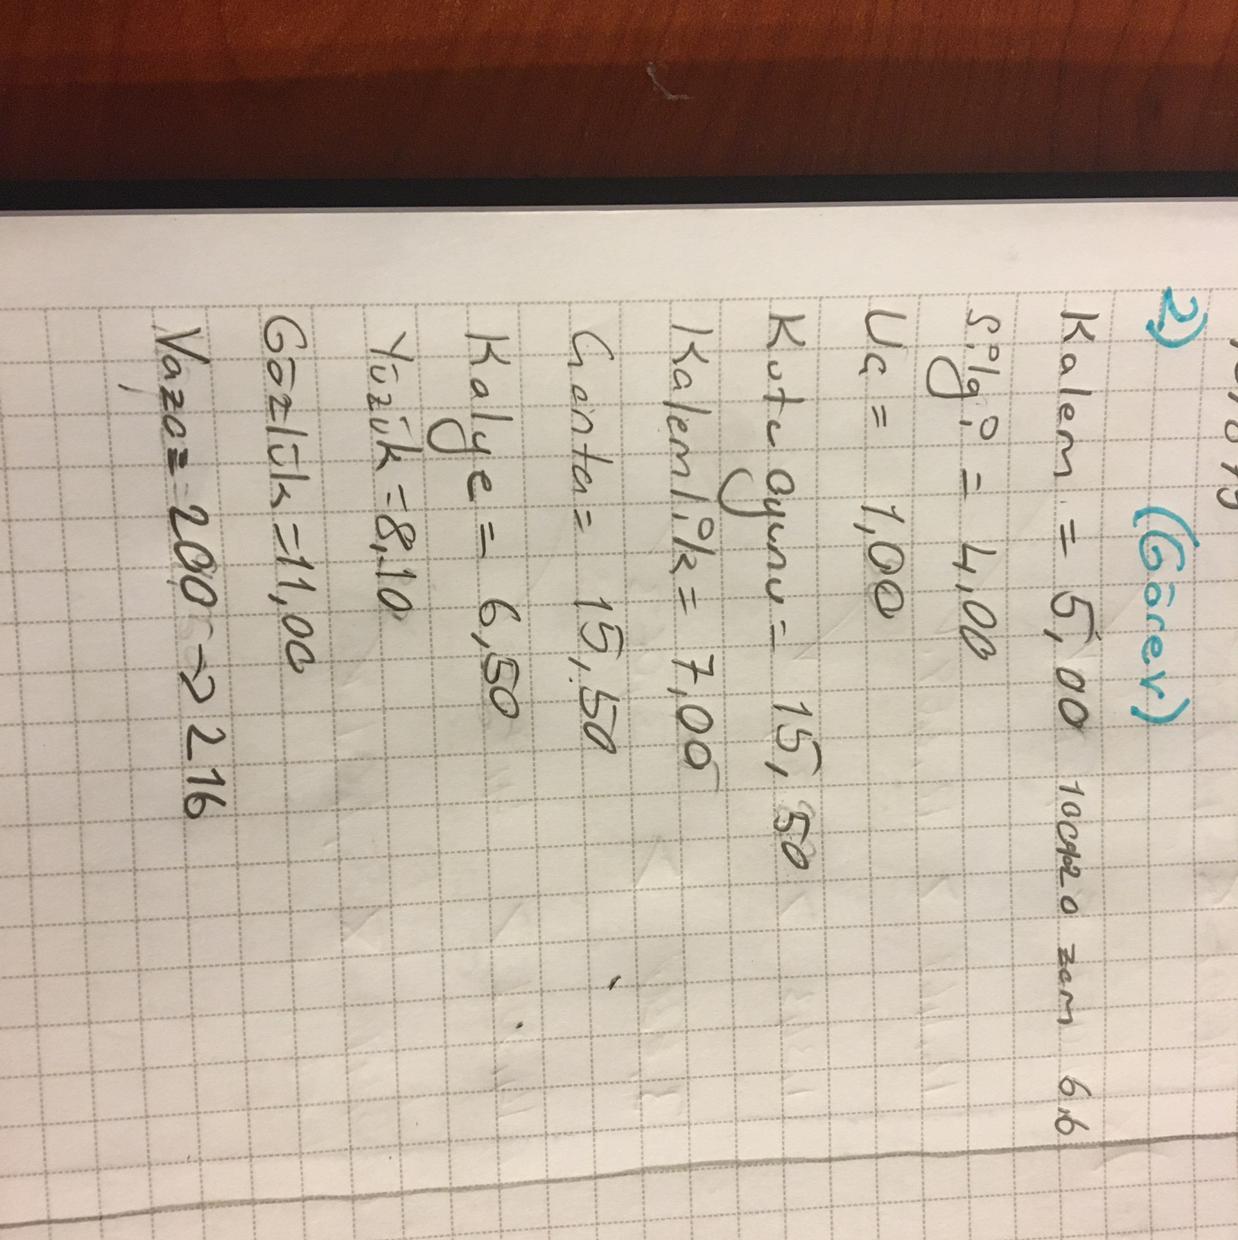 2) (Görev)
Kalem = 5,00 zam 6.6
Silgi = 4,00
Uç = 1,00
Kutu oyunu = 15,50
Kalemlik = 7,00
Çanta = 15,50
Kolye = 6,50
Yüzük = 8,10
Gözlük = 11,00
Vazo = 200 → 216